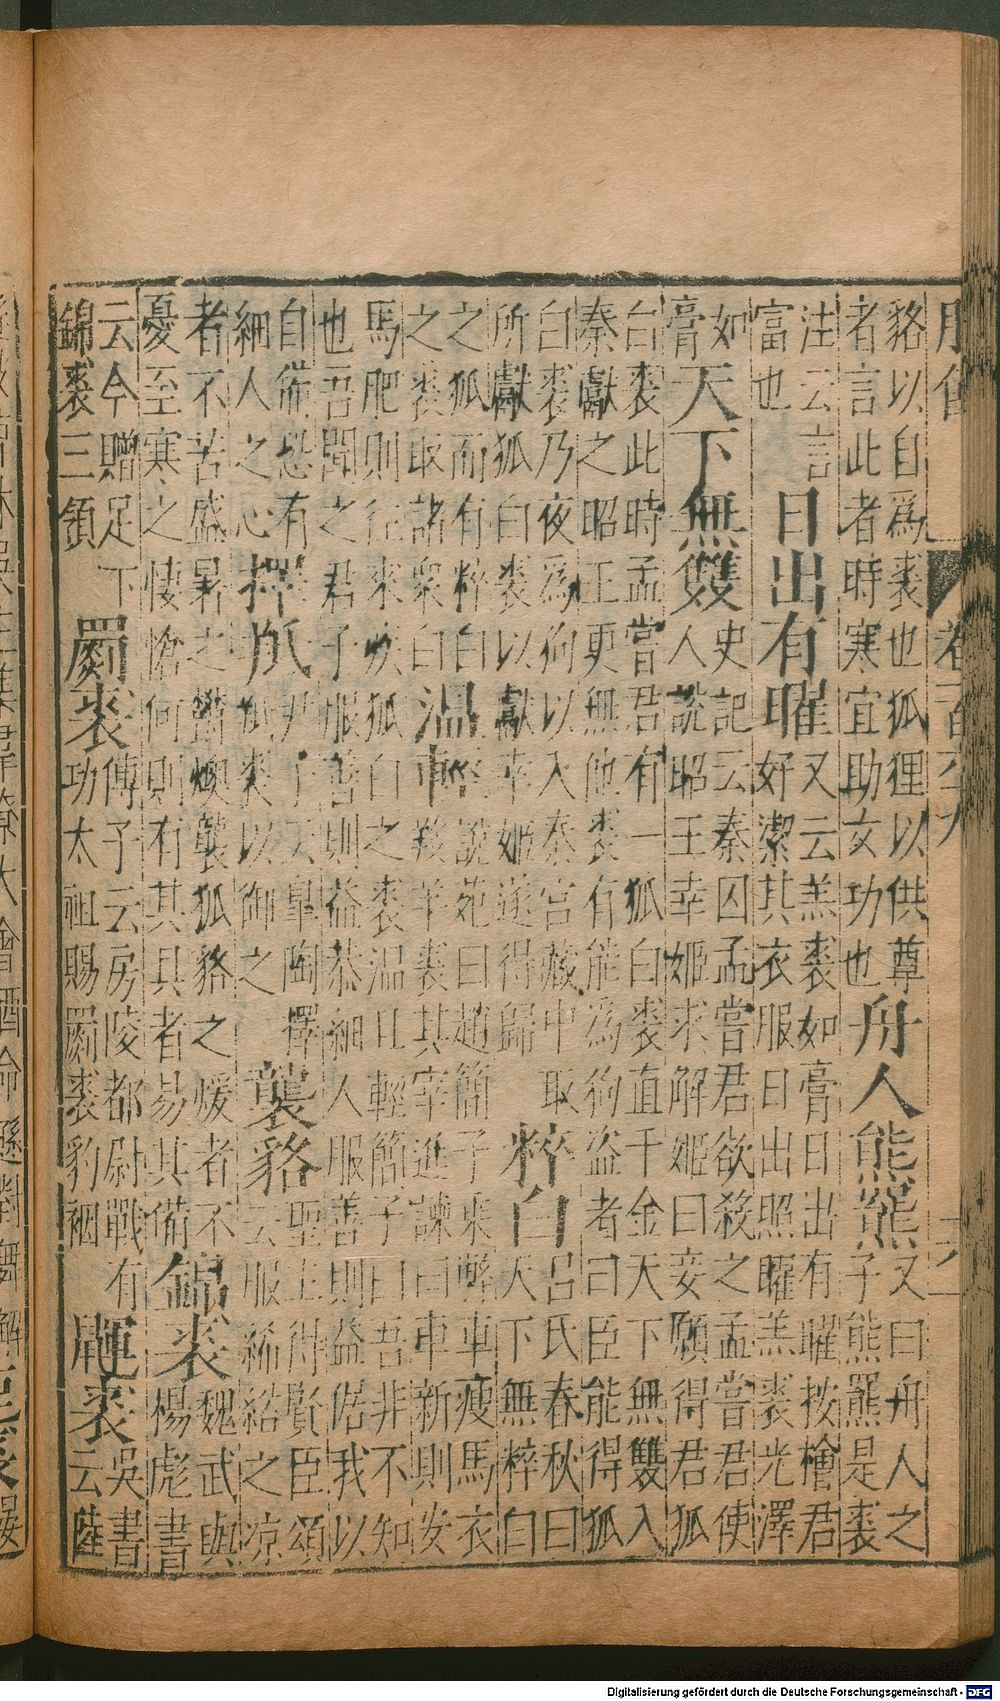 貉以自爲裘也狐狸以供尊
者言此者時寒宜助女功也
舟人熊羆
又曰舟人之
子熊羆是裘
注云言
富也
日出有曜
又云羔裘如膏日出有曜按檜君
好潔其衣服日出照曜羔裘光澤
如
膏
天下無雙
史記云秦囚孟嘗君欲殺之孟嘗君使
人説昭王幸姬求解姬曰妾願得君狐
白裘此時孟嘗君有一狐白裘直千金天下無雙入
秦獻之昭王更無他裘有能爲狗盜者曰臣能得狐
白裘乃夜爲狗以入秦宮藏中取
所獻狐白裘以獻幸姬遂得歸
粹白
呂氏春秋曰
天下無粹白
之狐而有粹白
之裘取諸衆白
温輕
説苑曰趙簡子乘弊車瘦馬衣
羖羊裘其宰進諫曰車新則安
馬肥則徃來疾狐白之裘温且輕簡子曰吾非不知
也吾聞之君子服善則益恭細人服善則益倨我以
自備恐有
細人之心
擇狐
尹子云臯陶擇
狐裘以御之
襲貉
聖主得賢臣頌
云服絺綌之凉
者不苦盛暑之鬱燠襲狐貉之煖者不
憂至寒之悽愴何則有其具者易其備
錦裘
魏武與
楊彪書
云今贈足下
錦裘三領
罽裘
傅子云房陵都尉戰有
功太祖賜罽裘豹裀
鼲裘
吳書
云陸
Digitalisierung gefördert durch die Deutsche Forschungsgemeinschaft - DFG